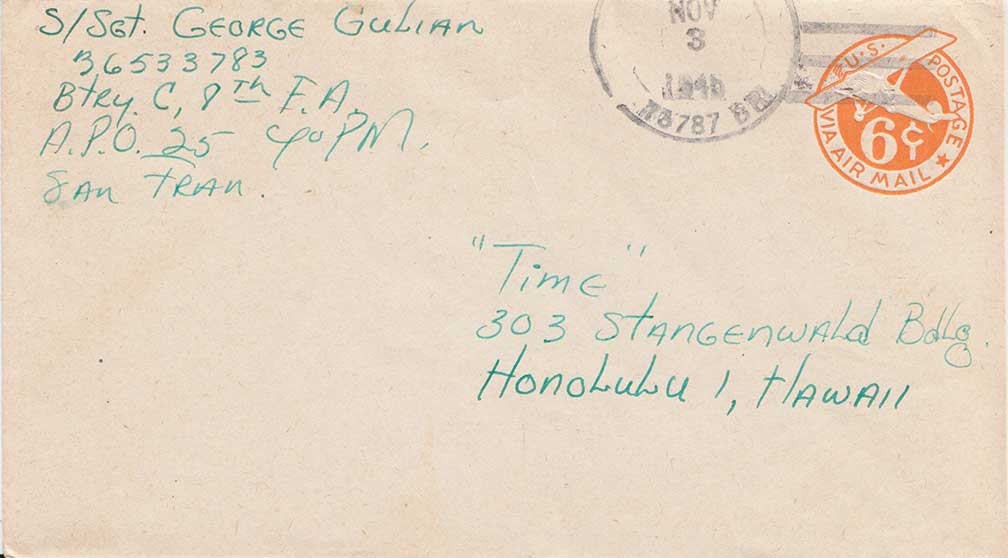 S/Sgt. George Gulian
36533783
Btry. C, 8th F.A.
A.P.O. 25 c/o PM,
San Fran.
NOV
3
1945
U.S. POSTAGE
6¢
VIA AIR MAIL
"Time"
303 Stangenwald Bdlg.
Honolulu 1, Hawaii